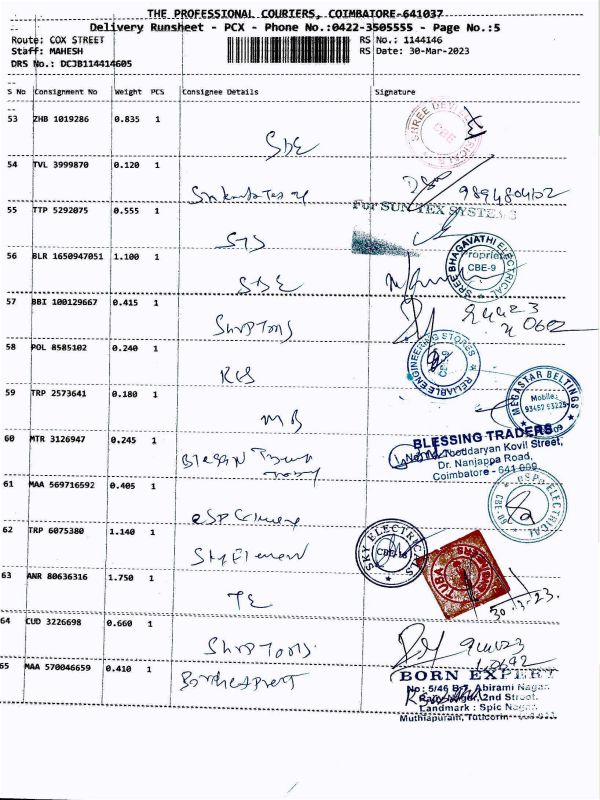 THE PROFESSIONAL COURIERS, COIMBATORE-641037
Delivery Runsheet - PCX - Phone No.:0422-3505555 - Page No.:5
Route: COX STREET RS No.: 1144146
Staff: MAHESH RS Date: 30-Mar-2023
DRS No.: DCJB114414605
S No Consignment No Weight PCS Consignee Details Signature
53 ZHB 1019286 0.835 1
SDE
SHREE DEVI ELECTRICALS CBE
54 TVL 3999870 0.120 1
9894804102
55 TTP 5292075 0.555 1
For SUN TEX SYSTEMS
STS
56 BLR 1650947051 1.100 1
SBE
SREE BHAGAVATHI ELECTRICAL
CBE-9
57 BBI 100129667 0.415 1
Shrp Tools
58 POL 8585102 0.240 1
RES
RELIABLE ENGINEERING STORES
59 TRP 2573641 0.180 1
MB
MEGASTAR BELTINGS
Mobile:
60 MTR 3126947 0.245 1
BLESSING TRADERS
Kovil Street,
Dr. Nanjappa Road,
Coimbatore - 641 009
61 MAA 569716592 0.405 1
62 TRP 6075380 1.140 1
Sky Element
SKY ELECTRICALS
63 ANR 80636316 1.750 1
TE
TUBA
30.3.23.
64 CUD 3226698 0.660 1
Shrp Tools.
65 MAA 570046659 0.410 1
Born Expert
BORN EXPERT
No: 5/46 Abirami Nagar,
2nd Street.
Landmark : Spic Nagar
Muthiapuram, Tuticorin